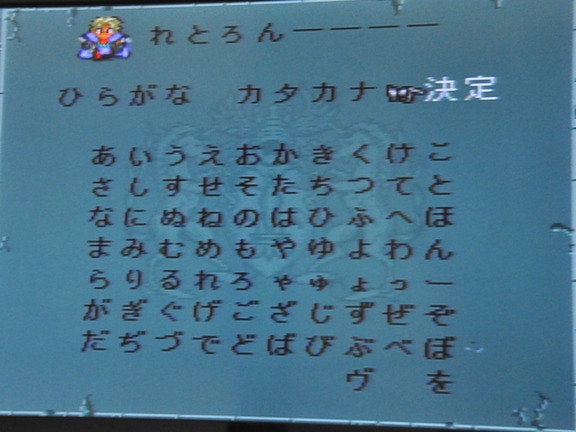 れとろんーーーー
ひらがな カタカナ 決定
あいうえおかきくけこ
さしすせそたちつてと
なにぬねのはひふへほ
まみむめもやゆよわん
らりるれろゃゅょっー
がぎぐげござじずぜぞ
だぢづでどばびぶべぼ
ヴ を